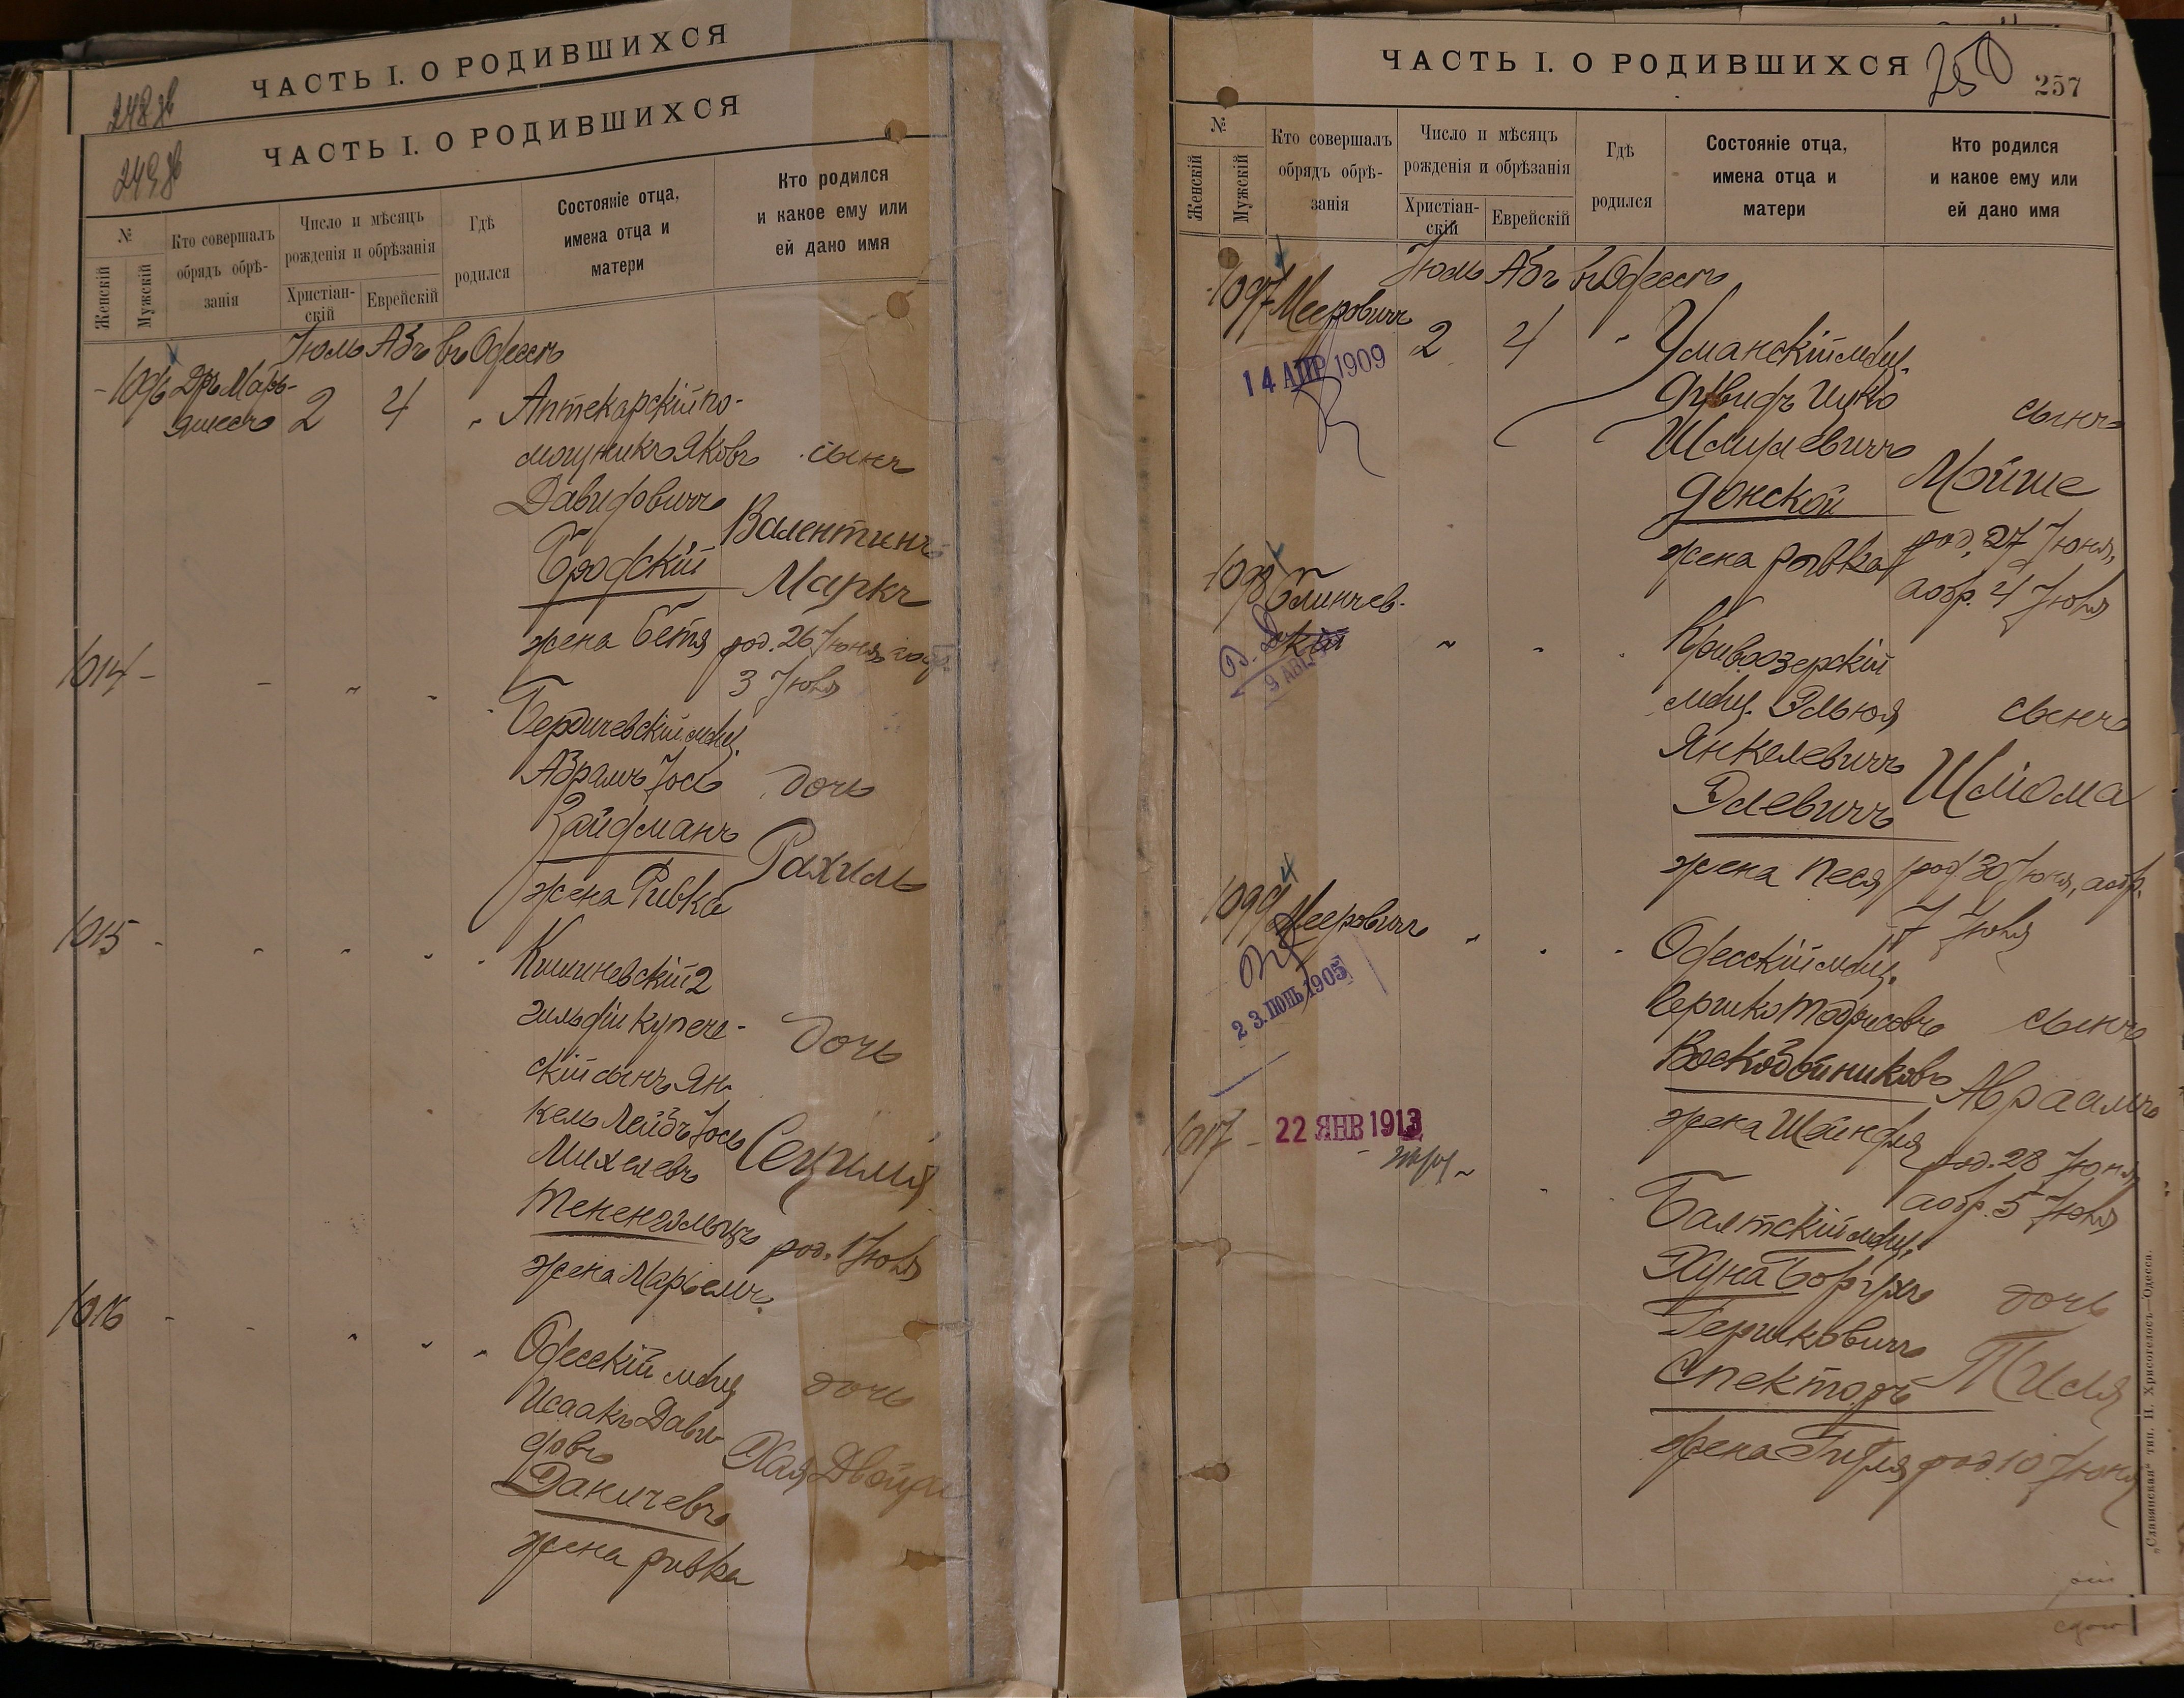 ЧАСТЬ I. О РОДИВШИХСЯ
248
ЧАСТЬ I. О РОДИВШИХСЯ
249
№
Женскій
Мужскій
Кто совершалъ
обрядъ обрѣ-
занія
Число и мѣсяцъ
рожденія и обрѣзанія
Христіан-
скій
Еврейскій
Гдѣ
родился
Состояніе отца,
имена отца и
матери
Кто родился
и какое ему или
ей дано имя
Іюль Абъ въ Одессѣ
1096 Дръ Марь-
яшесъ 2 4 " Аптекарскій по-
мощникъ Яковъ сынъ
Давидовичъ
Бродскій Валентинъ
Маркъ
жена Бетя род. 26 Іюня, а обр.
3 Іюля
1014 - - " " " Бердичевскій мѣщ.
Абрамъ Іось дочь
Зайдманъ
жена Ривка Рахиль
1015 - " " " " Кишиневскій 2
гильдіи купече-
скій сынъ Ян-
кель Лейбъ Іось
Михелевъ
дочь
Сецилія
Тененгольцъ род. 1 Іюля
жена Марьемъ
1016 - - " " " Одесскій мѣщ
Исаакъ Дави-
довъ
дочь
Хая Двойра
Даничевъ
жена Ривка
ЧАСТЬ I. О РОДИВШИХСЯ
250
257
№
Женскій
Мужскій
Кто совершалъ
обрядъ обрѣ-
занія
Число и мѣсяцъ
рожденія и обрѣзанія
Христіан-
скій
Еврейскій
Гдѣ
родился
Состояніе отца,
имена отца и
матери
Кто родился
и какое ему или
ей дано имя
Іюль Абъ въ Одессѣ
1097 Мееровичъ 2 4 " Уманскій мѣщ.
14 АПР 1909
Дувидъ Ицко
Шмулевичъ сынъ
Донской Мойше
жена Рывка род. 27 Іюня,
а обр. 4 Іюля
1098 Блинчев-
скій " " " Кривоозерскій
9 АВГ
мѣщ. Эльюя сынъ
Янкелевичъ
Элевичъ Шлёма
жена Песя род 30 Іюня, а обр.
7 Іюля
1099 Мееровичъ " " " Одесскій мѣщ.
23. ІЮНЬ 1905
Гершко Тодрисовъ сынъ
Воскобойниковъ Абраамъ
жена Шейндля род. 28 Іюня,
а обр. 5 Іюля
1017 - 22 ЯНВ 1913 - " " " Балтскій мѣщ.
Хуна Борухъ дочь
Гершковичъ
Спекторъ
жена Гитля род 10 Іюня
„Славянская“ тип. Н. Хрисогелосъ—Одесса.